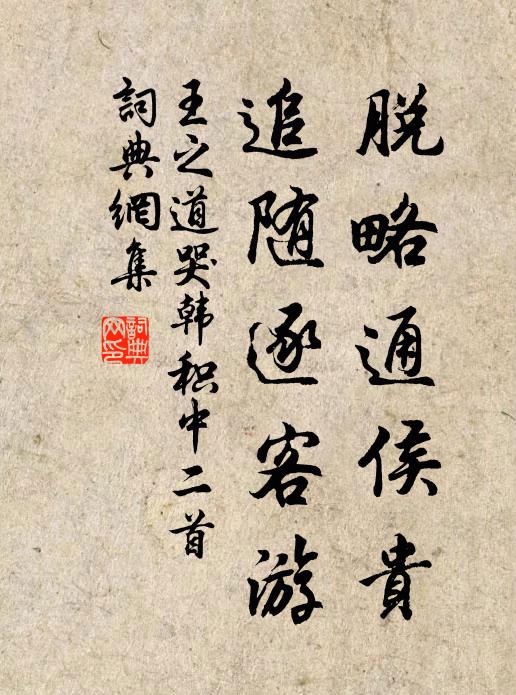 脱略通侯貴
追随逐客游
王之道哭韩积中二首
詞典網集
詞典網印